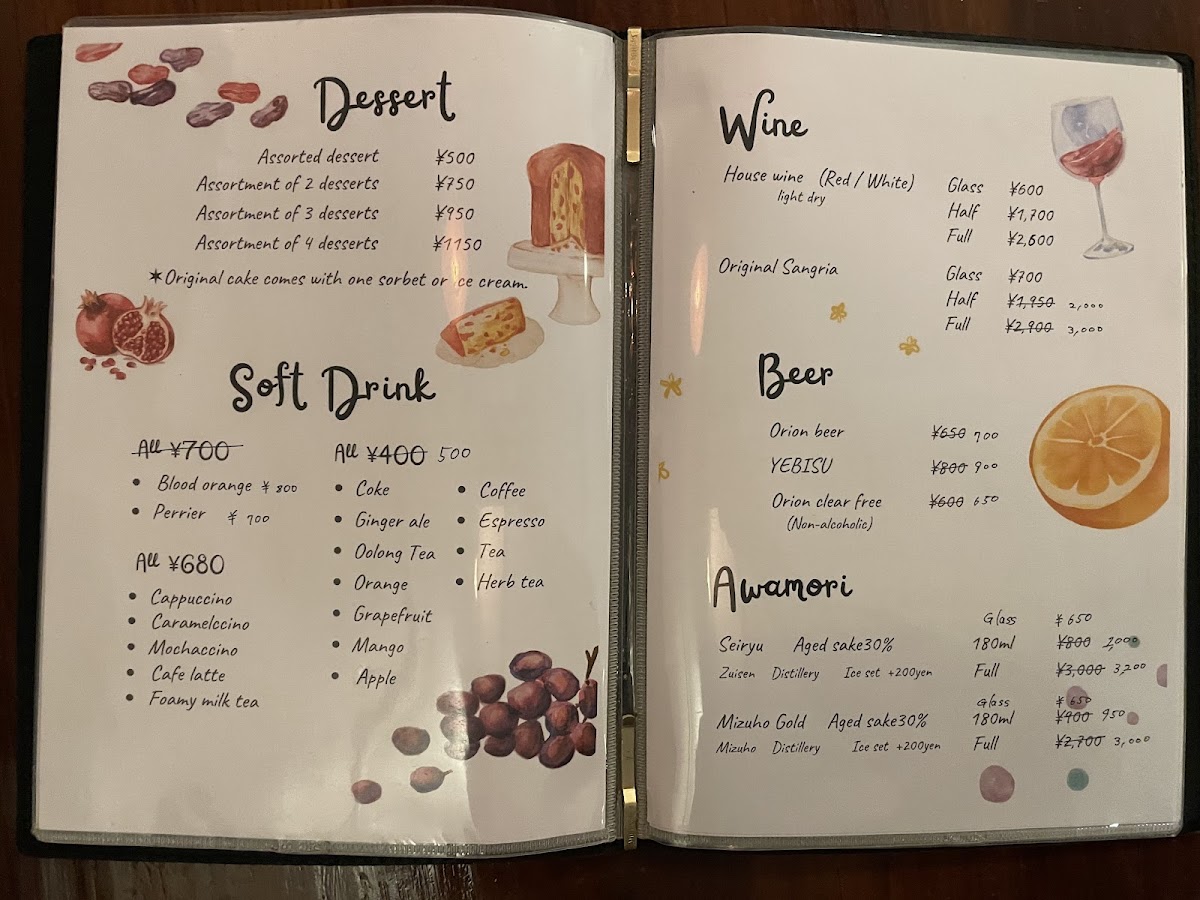 Dessert
Assorted dessert ¥500
Assortment of 2 desserts ¥750
Assortment of 3 desserts ¥950
Assortment of 4 desserts ¥1150
✶Original cake comes with one sorbet or ice cream.
Soft Drink
All ¥700
• Blood orange ¥ 800
• Perrier ¥ 700
All ¥680
• Cappuccino
• Caramelccino
• Mochaccino
• Cafe latte
• Foamy milk tea
All ¥400 500
• Coke
• Ginger ale
• Oolong Tea
• Orange
• Grapefruit
• Mango
• Apple
• Coffee
• Espresso
• Tea
• Herb tea
Wine
House wine (Red / White) Glass ¥600
light dry
Half ¥1,700
Full ¥2,600
Original Sangria Glass ¥700
Half ¥1,950 2,000
Full ¥2,900 3,000
Beer
Orion beer ¥650 700
YEBISU ¥800 900
Orion clear free ¥600 650
(Non-alcoholic)
Awamori
Glass ¥650
Seiryu Aged sake30% 180ml ¥800 1,000
Zuisen Distillery Ice set +200yen Full ¥3,000 3,200
Glass ¥650
Mizuho Gold Aged sake30% 180ml ¥900 950
Mizuho Distillery Ice set +200yen Full ¥2,700 3,000